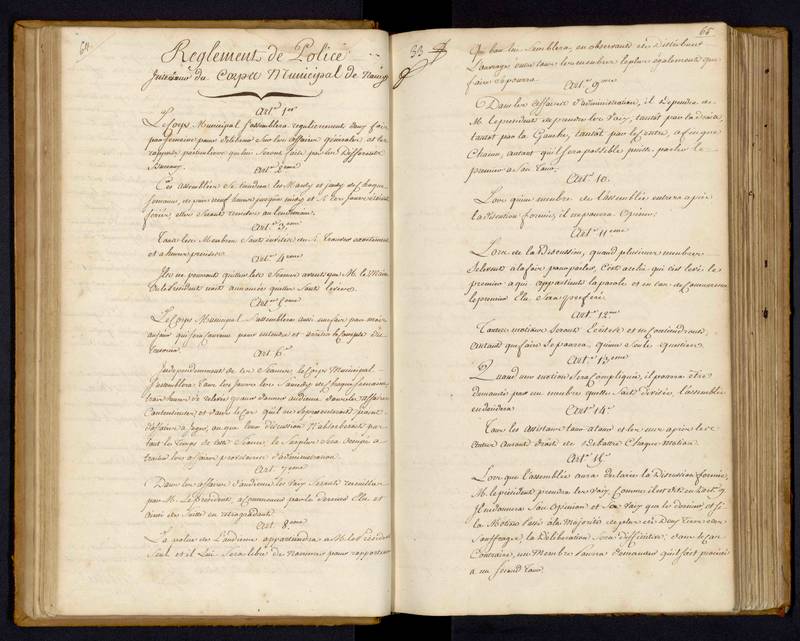 64.
Reglement de Police
Interieur du Corps Municipal de Nancy
Art.er 1er
Le Corps Municipal s'assemblera regulierement deux fois
par semaine pour deliberer sur les affaires generales et les
rapports particuliers qui lui seront faits par les Differents
Bureaux.
Art.e 2eme
Ces assemblées se tiendront les Mardy et jeudy de chaque
semaine, depuis neuf heures jusqu'à midy et si les jours étaient
fériés elles seront remises au lendemain.
Art.e 3eme
Tous les Membres sont invités de s'y trouver exactement
et a heure precise.
Art.e 4eme
Ils ne pourront quitter les Seances avant que M. le Maire
ou le President n'ait annoncé qu'elles sont levées.
Art.e 5eme
Le Corps Municipal s'assemblera aussi une fois par mois
au jour qui sera convenu pour entendre et arrêter le Compte du
Tresorier.
Art. 6e
Independamment de ces Seances le Corps Municipal
s'assemblera tous les jours lors Samedy de chaque semaine
trois heures de relevée pour donner audience dans les affaires
Contentieuses et dans le cas qu'il ne se presenteroit point
d'affaires a juger, ou que leur discussion n'absorberoit pas
tout le temps de cette Seance, le surplus sera occupé a
traiter les affaires provisoires d'administration.
Art. 7eme
Dans les affaires d'audience les voix seront recueillies
par M. Le President, a commencer par le dernier Elu et
ainsi de suite en retrogradant.
Art. 8eme
La police de l'audience appartiendra a M. le President
seul et il lui sera libre de nommer pour rapporteur
33
65
Qui bon lui semblera, en observant de Distribuer
l'ouvrage entre tous les membres le plus également que
faire se pourra.
Art.e 9eme
Dans les affaires d'administration, il dependra de
M. le president de prendre les voix, tantôt par la droite,
tantôt par la Gauche, tantôt par le Centre, afin que
Chacun, autant qu'il sera possible puisse parler le
premier a son tour.
Art.e 10.
Lors qu'un membre de l'assemblée entrera après
la discution formée, il ne pourra opiner.
Art.e 11eme
Lors de la Discussion, quand plusieurs membres
se levent à la fois pour parler, c'est a celui qui s'est levé le
premier a qui appartient la parole et en cas de Concurrence
le premier Elu sera preferé.
Art.e 12eme
Toutes motions seront Ecrites et ne Contiendront
autant que faire se pourra qu'une seule question.
Art.e 13eme
Quand une motion sera Compliquée, il pourra etre
demandé par un membre qu'elle soit divisée, l'assemblée
en decidera.
Art.e 14e
Tous les assistans tour a tour et les uns après les
autres auront droit de debattre Chaque motion.
Art.e 15e
Lors que l'assemblée aura declaré la Discussion fermée,
M. le president prendra les voix comme il est dit en l'art.e 9
Il n'donnera son opinion et sa voix que le dernier, et si
la Motion passe à la Majorité de plus des Deux tiers des
Suffrages, la Deliberation sera deffinitive; dans le Cas
Contraire, un Membre pourra demander qu'il soit procédé
a un second tour.